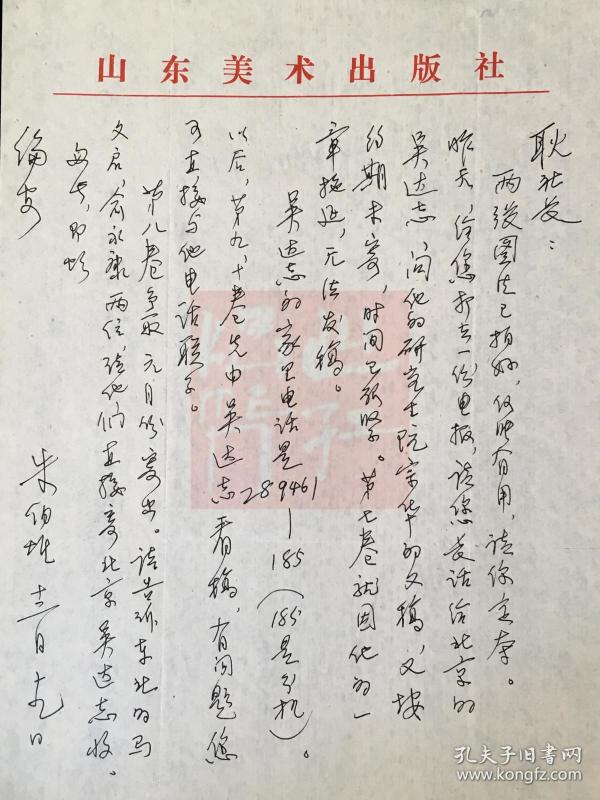 山东美术出版社
耿社长：
两张图片已拍好，仅供备用，请你定夺。
昨天，给您打去一份电报，请您长话给北京的
吴达志，问他的研究生阮宗华的文稿，又按
约期未寄，时间已very紧。第七卷就因他的一
章拖延，无法发稿。
吴达志的家里电话是289461—185（185是分机）。
以后，第九、十卷先由吴达志看稿，有问题您
可直接与他电话联系。
第八卷争取元月份寄出。请告诉东北的马
文启、俞永康两位，请他们直接寄北京吴达志收。
匆匆，即颂
编安
朱伯雄 十二月九日
孔夫子旧书网
www.kongfz.com